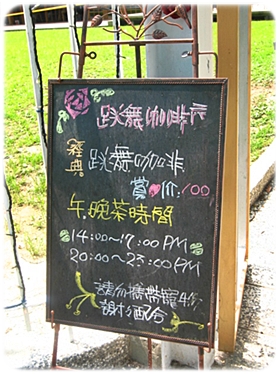 跳舞咖啡店
經典 跳舞咖啡
賞♥价:100
午.晚茶時間
14:00~17:00 PM
20:00~23:00 PM
請勿攜帶寵物
謝謝配合